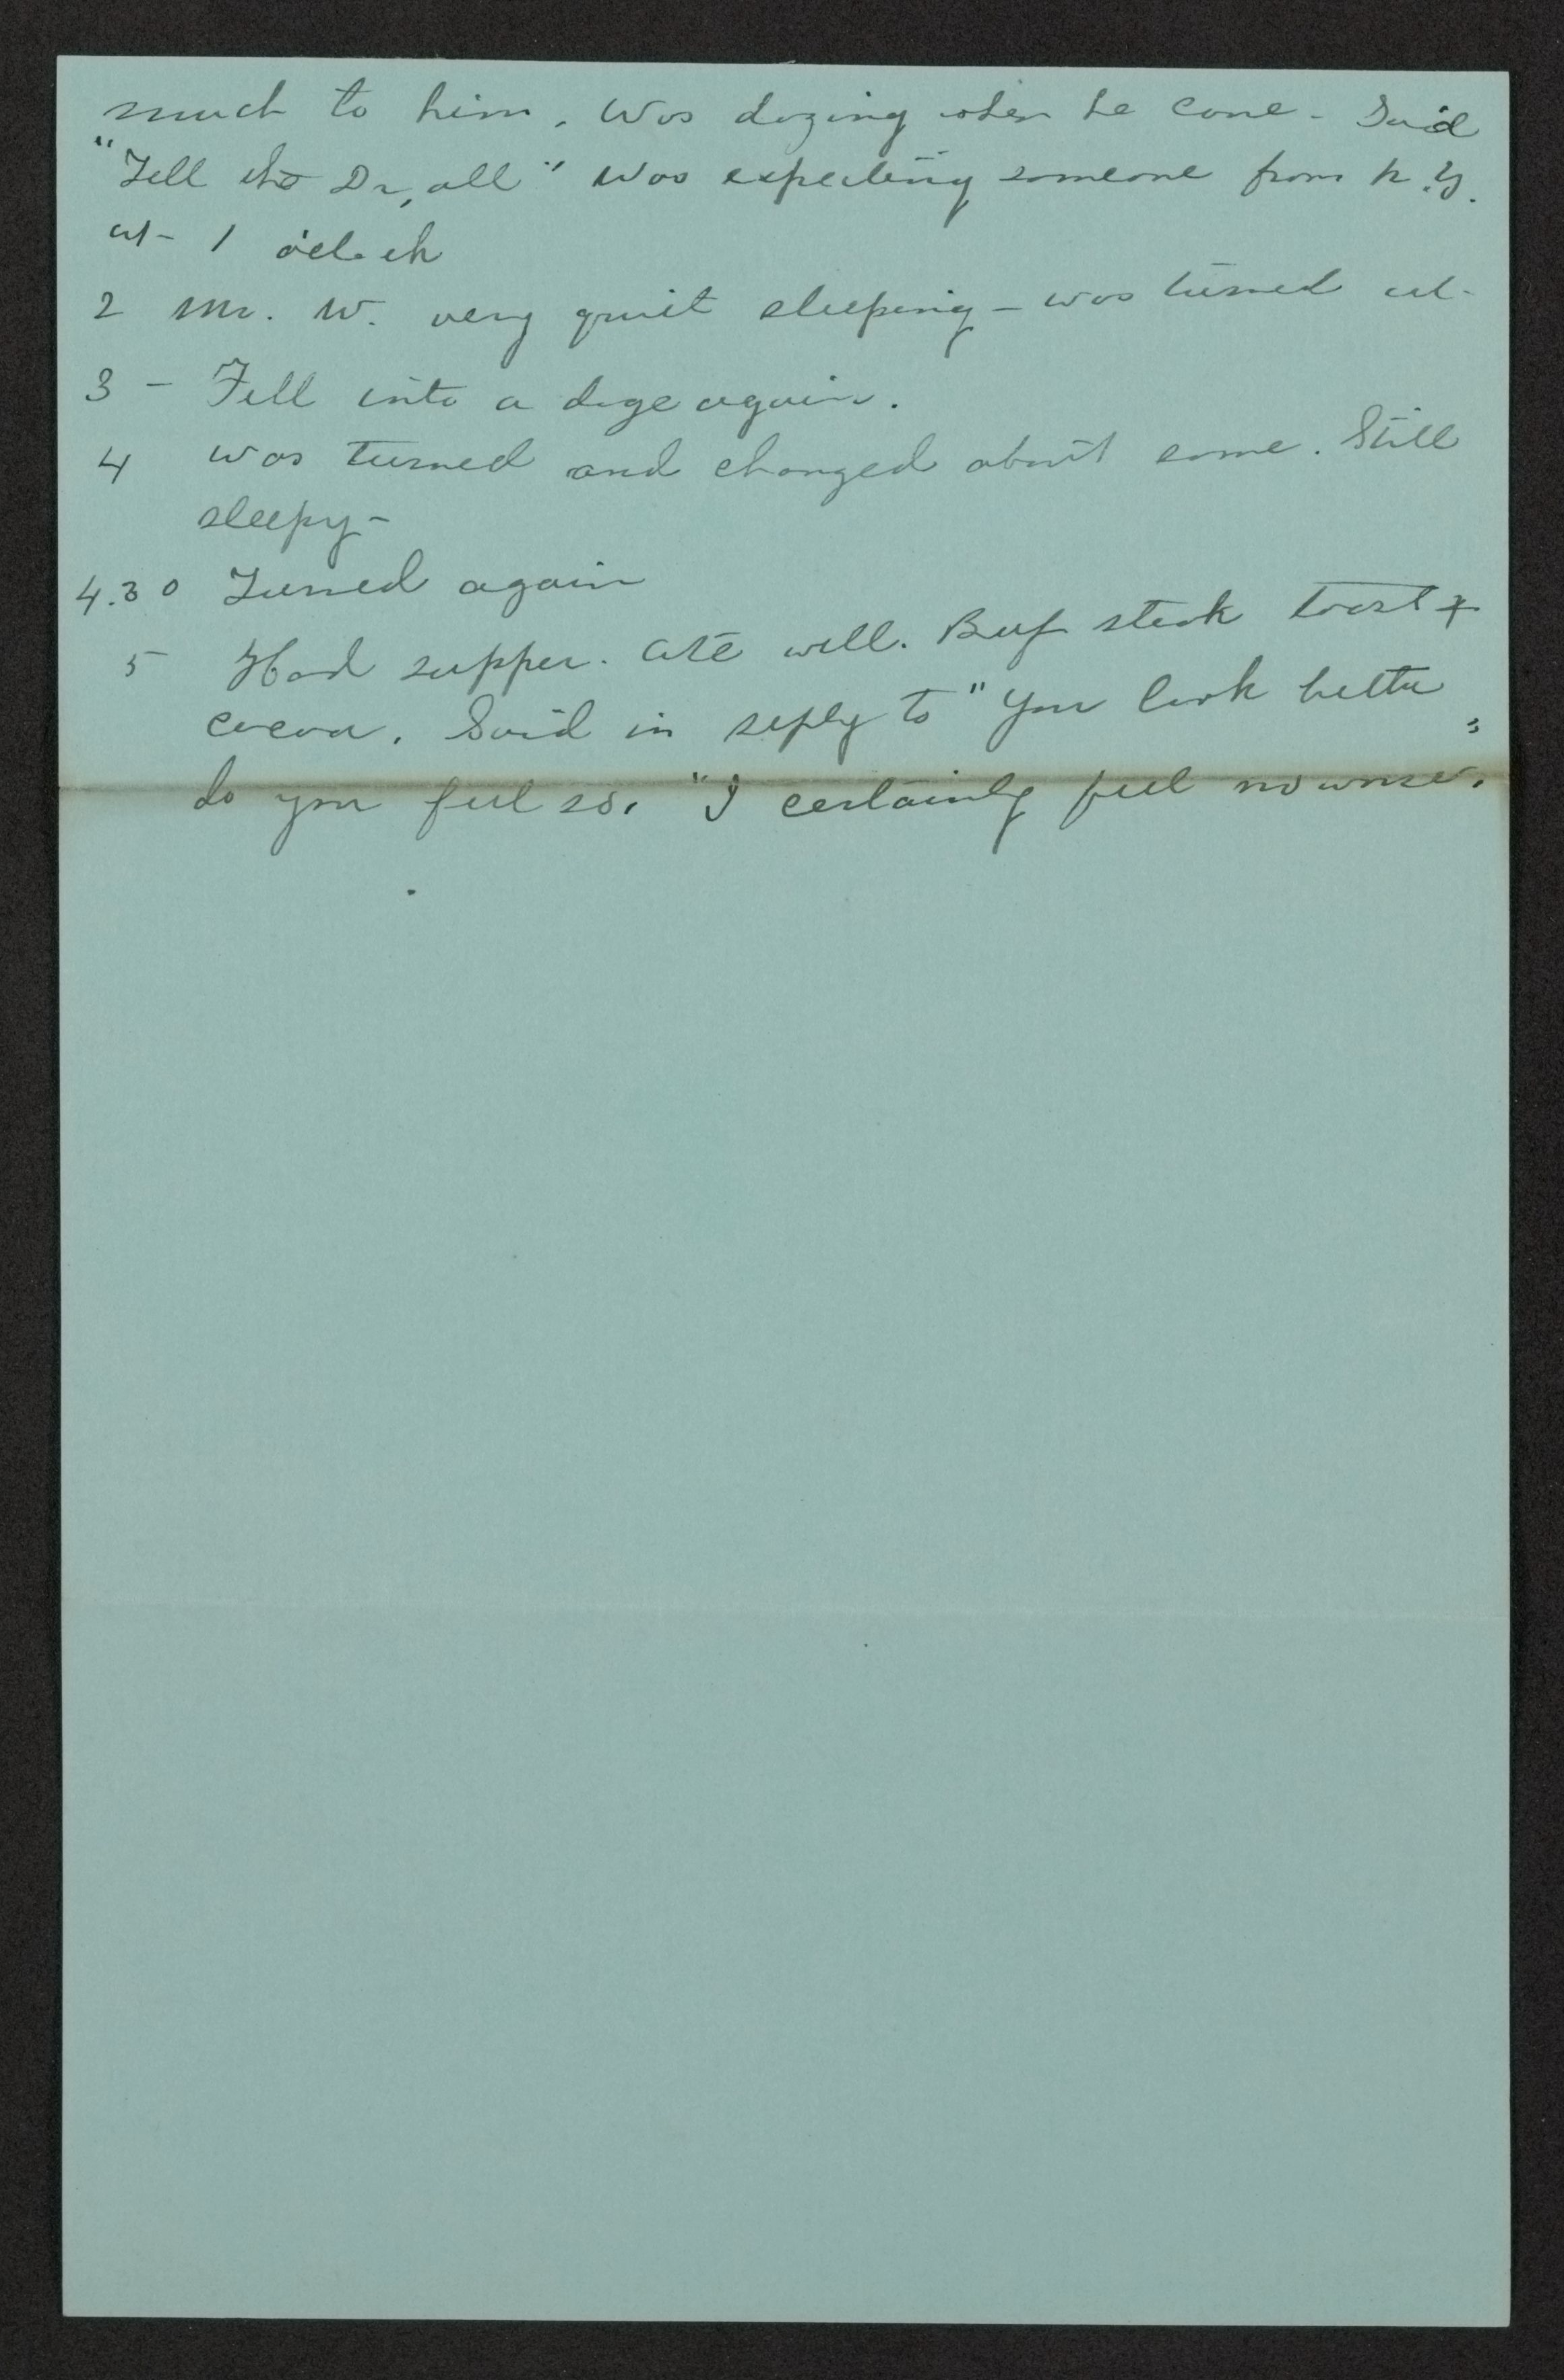 much to him. Was dozing when he came - Said
"Tell the Dr, all" Was expecting someone from N.Y.
at - 1 o'clock
2 Mr. W. very quiet sleeping - was turned at -
3 - Fell into a doze again.
4 was turned and changed about some. Still
sleepy -
4.30 Turned again
5 Had supper. Ate well. Beef steak toast +
cocoa. Said in reply to "You look better
do you feel so." "I certainly feel no worse".